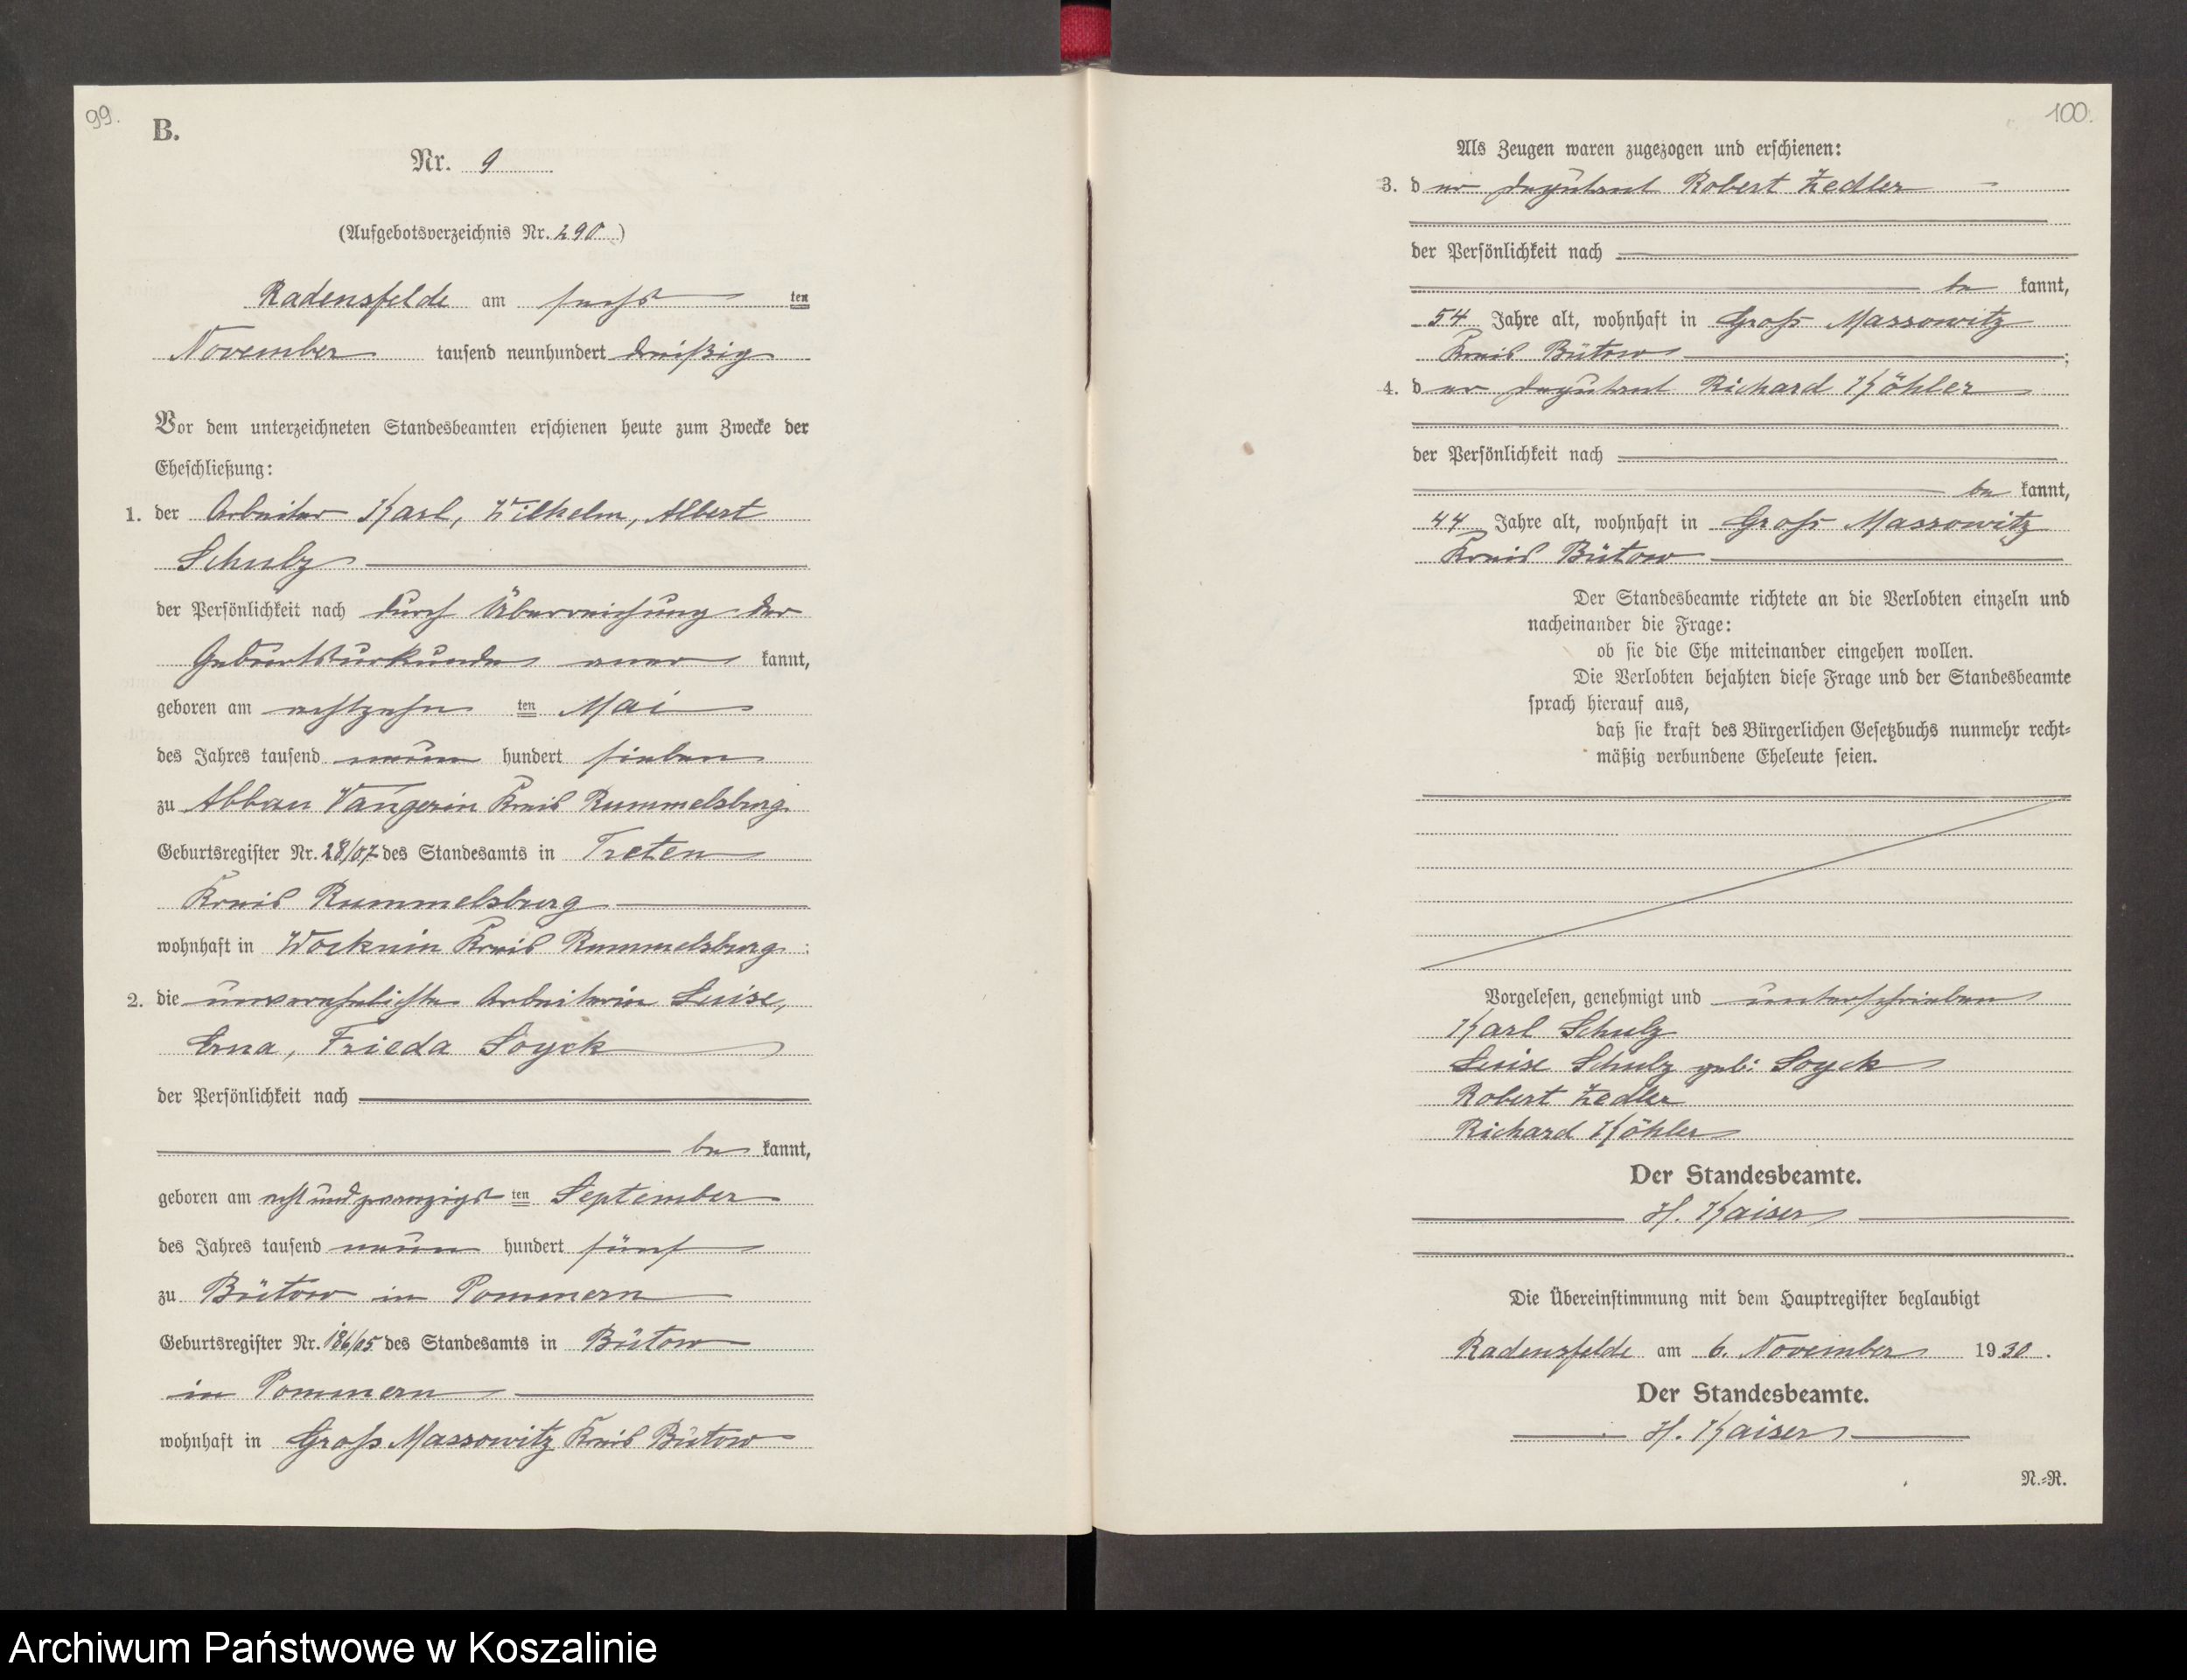 99.
B.
Nr. 9
(Aufgebotsverzeichnis Nr. 290)
Radensfelde am sechs ten
November tausend neunhundert dreißig
Vor dem unterzeichneten Standesbeamten erschienen heute zum Zwecke der
Eheschließung:
1. der Arbeiter Karl, Wilhelm, Albert
Schulz
der Persönlichkeit nach durch Überreichung der
Geburtsurkunde aner kannt,
geboren am achtzehn ten Mai
des Jahres tausend neun hundert sieben
zu Abbau Vangerin Kreis Rummelsburg
Geburtsregister Nr. 28/07 des Standesamts in Treten
Kreis Rummelsburg
wohnhaft in Wocknin Kreis Rummelsburg ;
2. die unverehelichte Arbeiterin Luise,
Erna, Frieda Soyck
der Persönlichkeit nach
be kannt,
geboren am acht und zwanzigst ten September
des Jahres tausend neun hundert fünf
zu Bütow in Pommern
Geburtsregister Nr. 186/05 des Standesamts in Bütow
in Pommern
wohnhaft in Groß Massowitz Kreis Bütow
100.
Als Zeugen waren zugezogen und erschienen:
3. d er Deputant Robert Zedler
der Persönlichkeit nach
be kannt,
54 Jahre alt, wohnhaft in Groß Massowitz
Kreis Bütow ;
4. d er Deputant Richard Köhler
der Persönlichkeit nach
be kannt,
44 Jahre alt, wohnhaft in Groß Massowitz
Kreis Bütow
Der Standesbeamte richtete an die Verlobten einzeln und
nacheinander die Frage:
ob sie die Ehe miteinander eingehen wollen.
Die Verlobten bejahten diese Frage und der Standesbeamte
sprach hierauf aus,
daß sie kraft des Bürgerlichen Gesetzbuchs nunmehr recht-
mäßig verbundene Eheleute seien.
Vorgelesen, genehmigt und unterschrieben
Karl Schulz
Luise Schulz geb: Soyck
Robert Zedler
Richard Köhler
Der Standesbeamte.
H. Kaiser
Die Übereinstimmung mit dem Hauptregister beglaubigt
Radensfelde am 6. November 1930.
Der Standesbeamte.
H. Kaiser
N.-R.
Archiwum Państwowe w Koszalinie